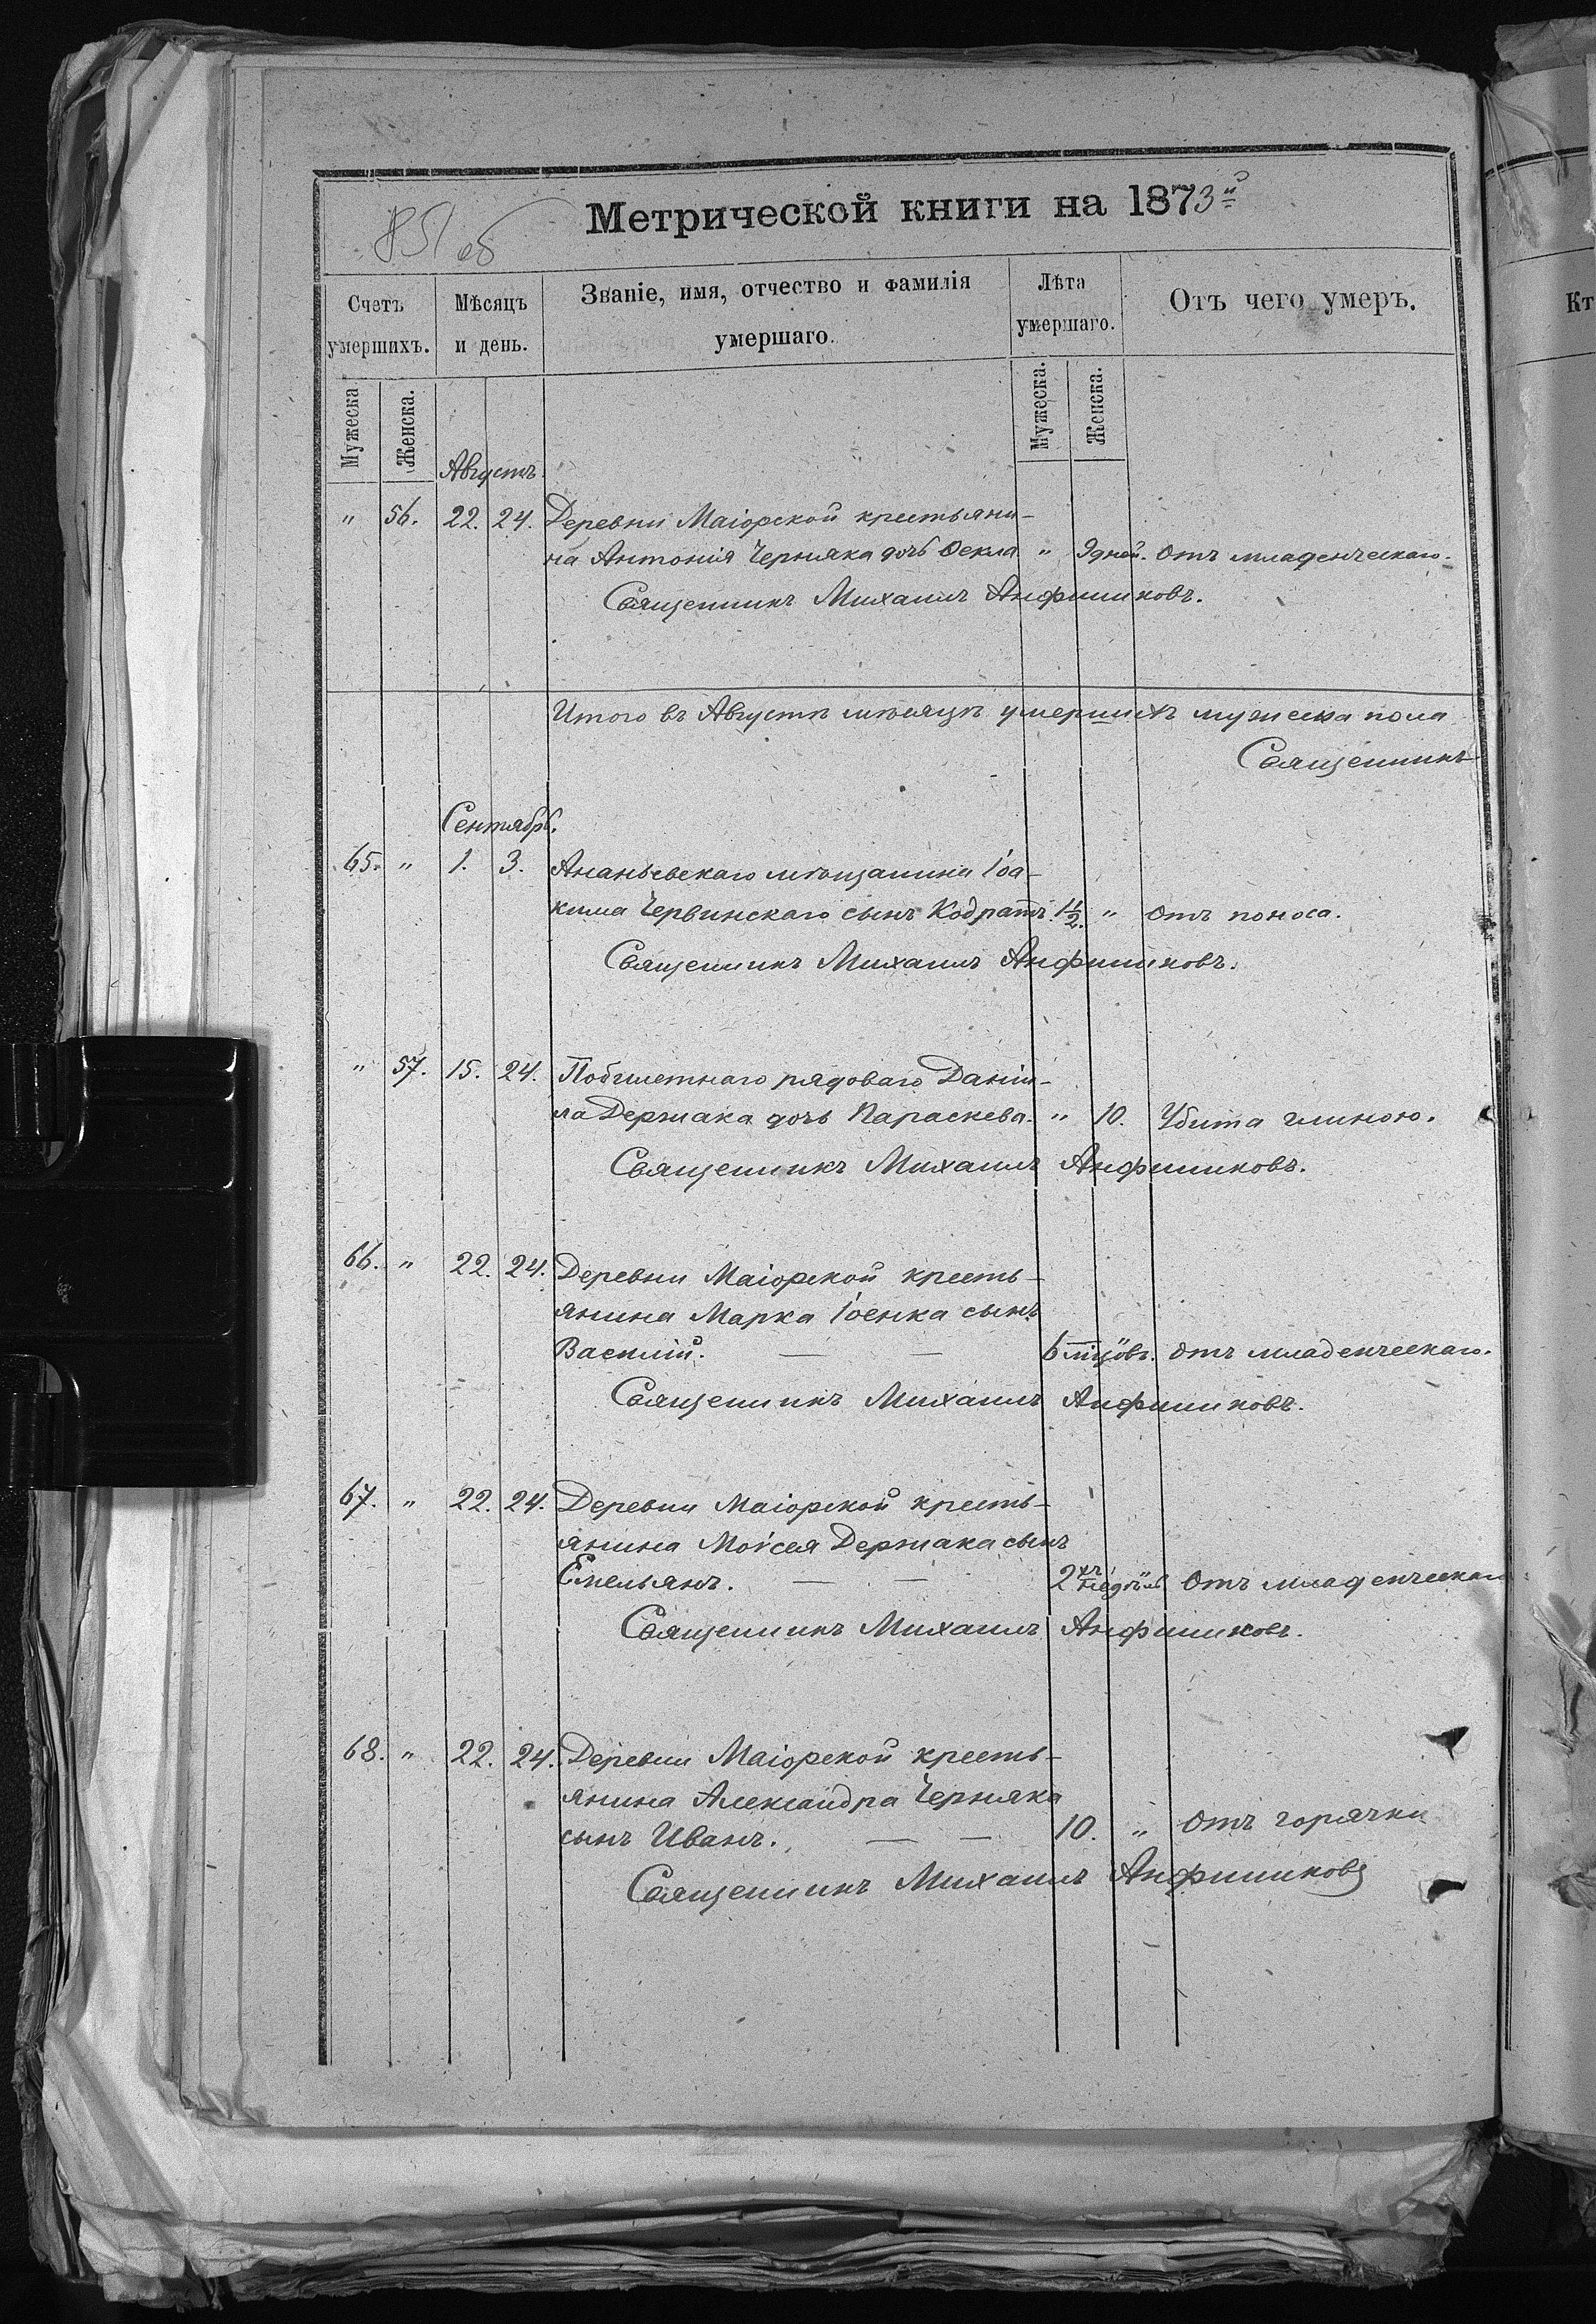 Метрической книги на 1873й
851 об
Счетъ умершихъ.
Мѣсяцъ и день.
Званіе, имя, отчество и фамилія умершаго.
Лѣта умершаго.
Отъ чего умеръ.
Кт
Мужеска
Женска.
Мужеска.
Женска.
Августъ.
" 56. 22. 24. Деревни Маіорской крестьяни-
на Антонія Черняка дочь Ѳекла " 9 дней. Отъ младенческаго.
Священникъ Михаилъ
Итого въ Августѣ мѣсяцѣ умершихъ мужеска пола
Священникъ
Сентябрь.
65. " 1. 3. Ананьевскаго мѣщанина Іоа-
кима Червинскаго сынъ Кодратъ. 1½. " Отъ поноса.
Священникъ Михаилъ
" 57. 15. 24. рядоваго Даніи-
ла Держака дочь Параскева. " 10. Убита глиною.
Священникъ Михаилъ
66. " 22. 24. Деревни Маіорской кресть-
янина Марка сынъ
Василій. — — 6 мцовъ. Отъ младенческаго.
Священникъ Михаилъ
67. " 22. 24. Деревни Маіорской кресть-
янина Моисея Держака сынъ
Емельянъ. — — 2хъ недѣль Отъ младенческаго
Священникъ Михаилъ
68. " 22. 24. Деревни Маіорской кресть-
янина Александра Черняка
сынъ Иванъ. — — 10. " Отъ горячки
Священникъ Михаилъ